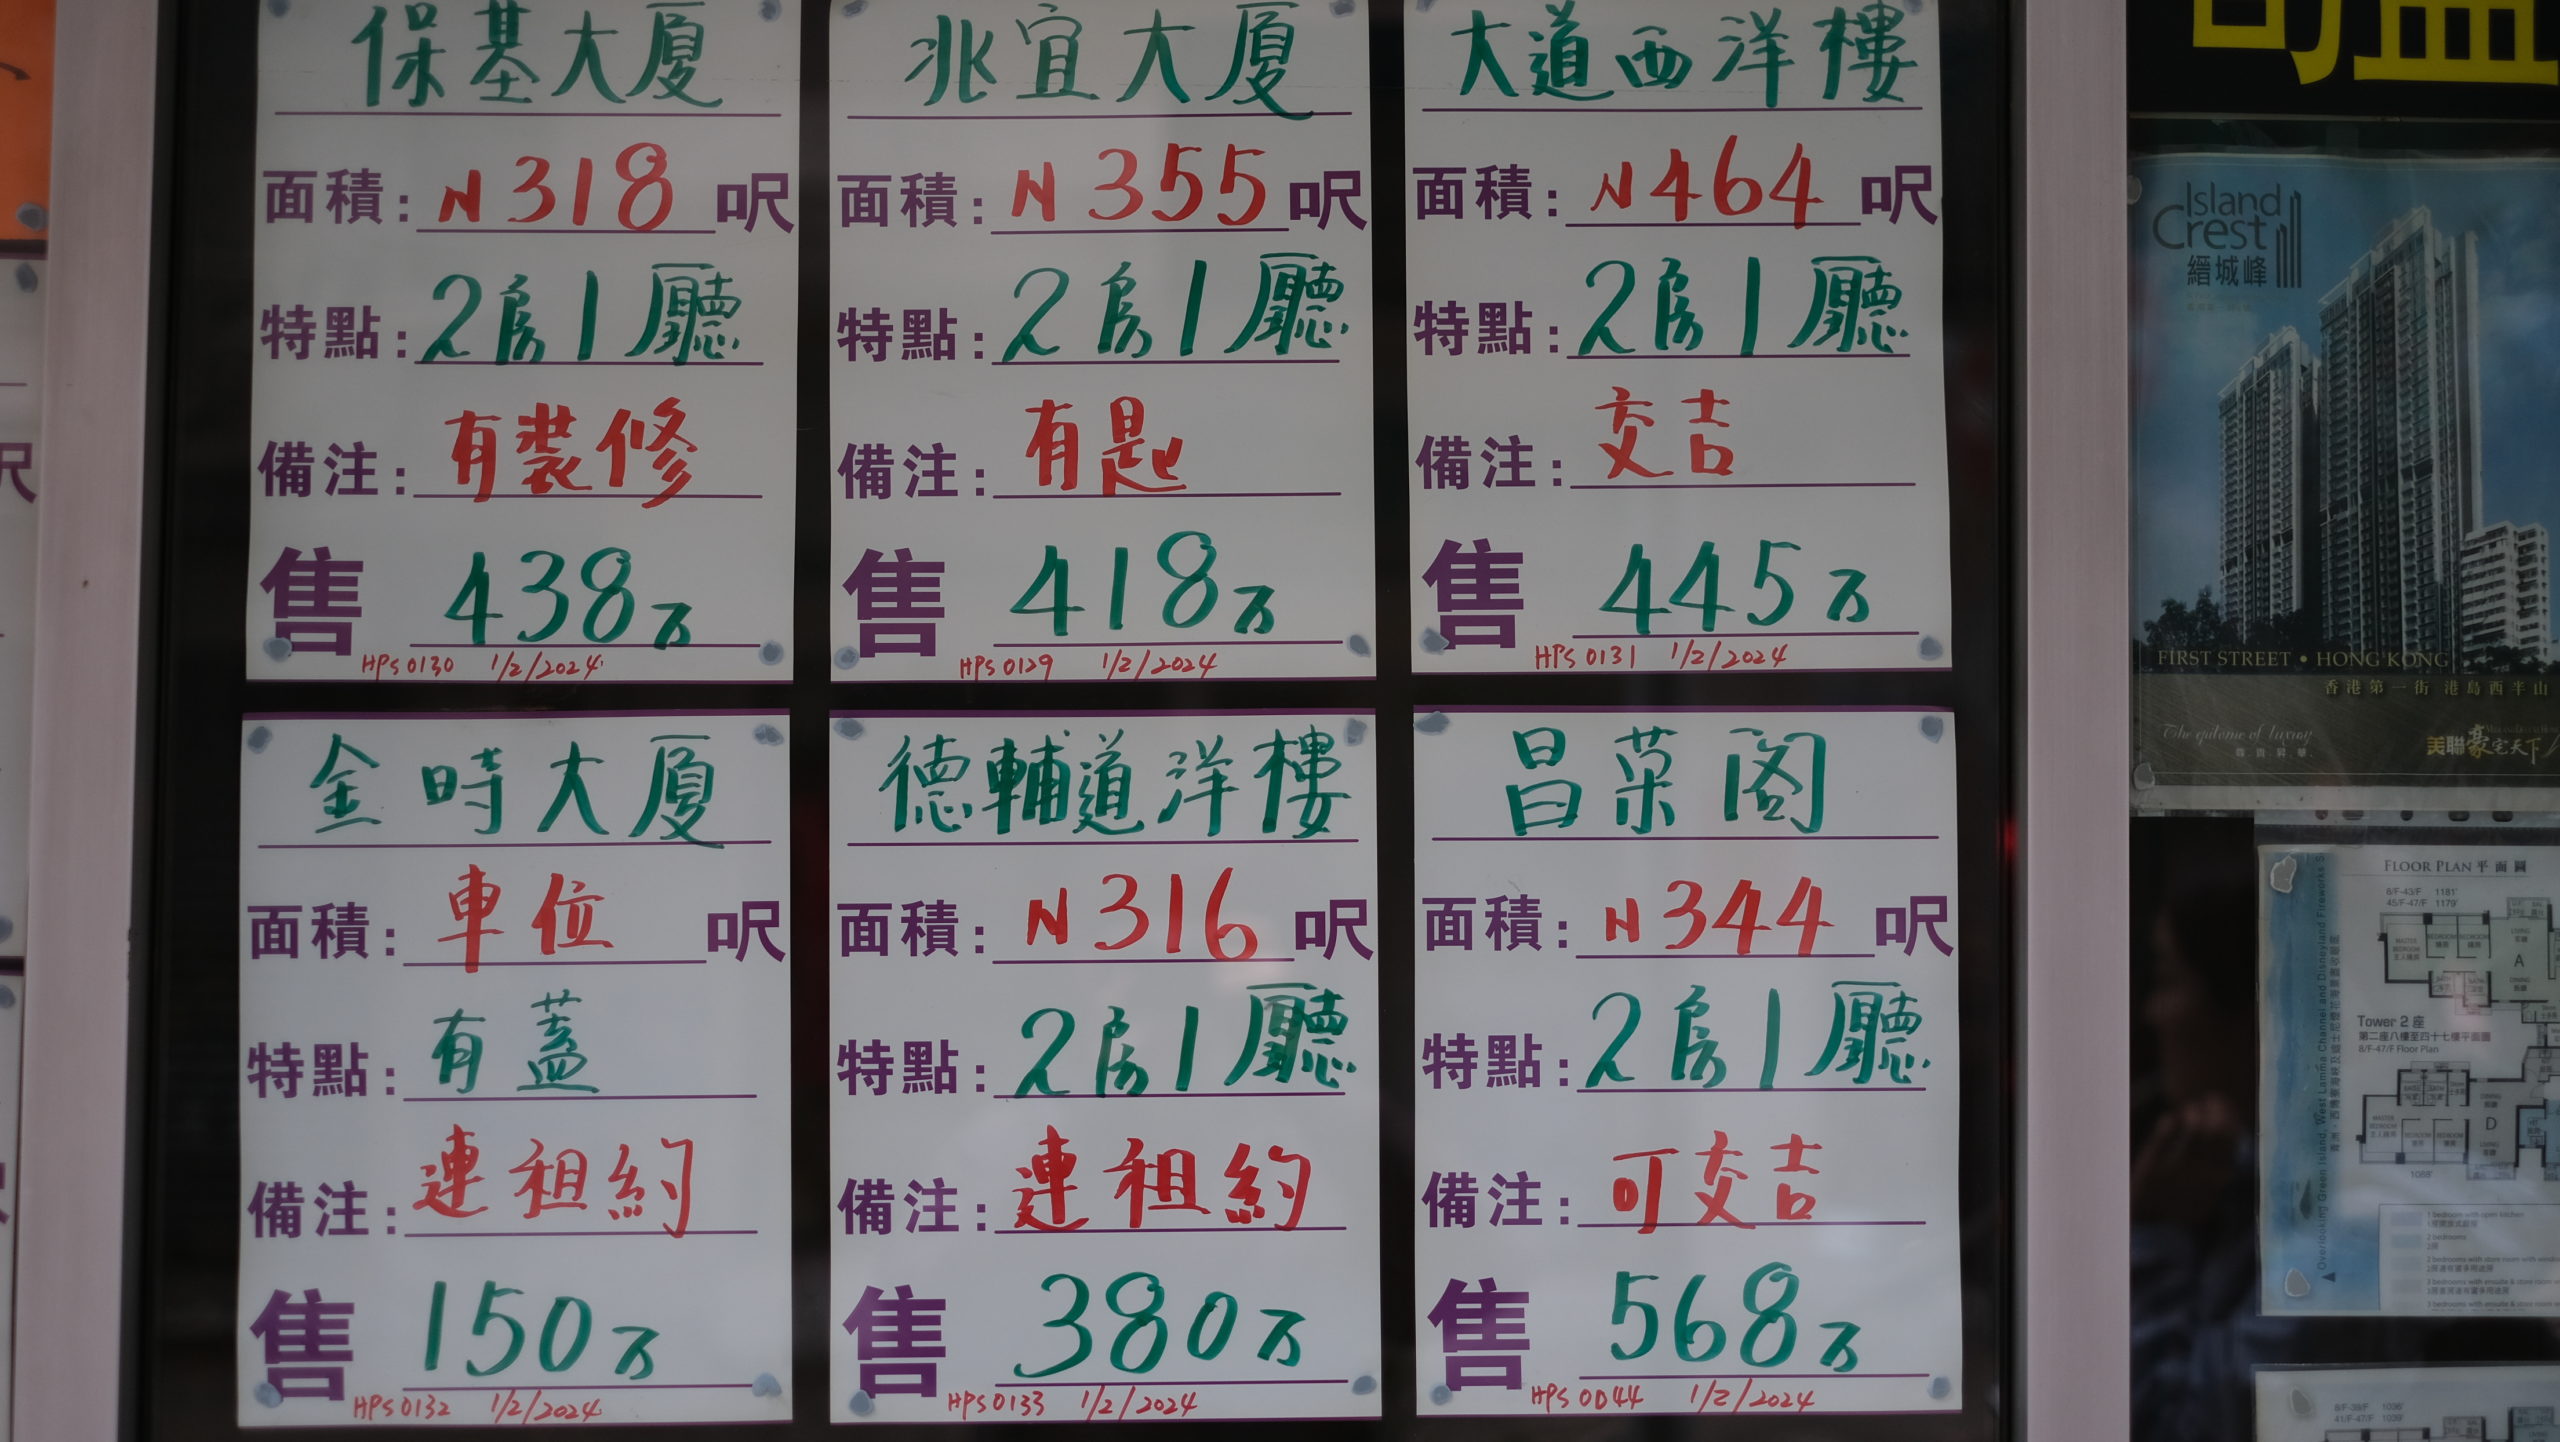 保基大廈
面積: N318 呎
特點: 2房1廳
備注: 有裝修
售 438万
HPS0130 1/2/2024
兆宜大廈
面積: N355 呎
特點: 2房1廳
備注: 有匙
售 418万
HPS0129 1/2/2024
大道西洋樓
面積: N464 呎
特點: 2房1廳
備注: 交吉
售 445万
HPS0131 1/2/2024
金時大廈
面積: 車位 呎
特點: 有蓋
備注: 連租約
售 150万
HPS0132 1/2/2024
德輔道洋樓
面積: N316 呎
特點: 2房1廳
備注: 連租約
售 380万
HPS0133 1/2/2024
昌菓阁
面積: N344 呎
特點: 2房1廳
備注: 可交吉
售 568万
HPS 0D44 1/2/2024
呎
Island
Crest
縉城峰
FIRST STREET • HONG KONG
香港第一街 港島西半山
The epitome of luxury
美聯豪宅天下
FLOOR PLAN 平面圖
8/F-43/F 1181'
45/F-47/F 1179'
A
Tower 2 座
第二座八樓至四十七樓平面圖
8/F-47/F Floor Plan
D
1088'
1 bedroom with open kitchen
2 bedrooms
2房
8/F-39/F 1036'
41/F-47/F 1039'